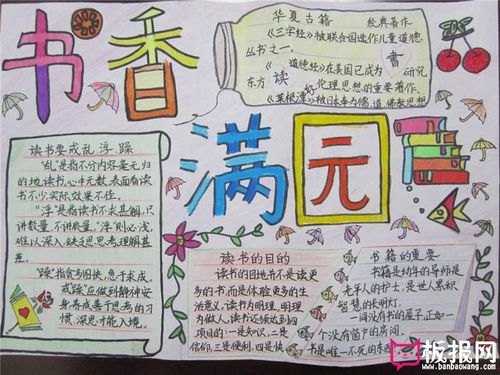 书香
满园
华夏古籍 经典著作
《三字经》被联合国选作儿童道德
丛书之一。
《道德经》在美国已成为 研究
东方 伦理思想的重要著作。
《菜根谭》被日本奉为儒、道、佛教思想
读
好
書
读书要戒乱、浮、躁
"乱"是指不分内容毫无归
的地读书,心中无数,表面看读
书不少实际效果不佳。
"浮"是指读书不求甚解,只
讲数量,不讲质量,"浮"则必浅,
难以深入,缺乏思考,理解甚
差。
"躁"指贪多图快,急于求成,
戒"躁"应做到静神安
身养成善于思考的习
惯,深思才能入境。
读书的目的
读书的目地并不是读更
多的书,而是体验更多的生
活意义,读书为明理,明理
为做人,读书必须达到四
项目的:一是知识,二是
信仰,三是便利,四是快
书籍的重要
书籍是幼年的导师是
老年人的护士,是世人累积
智慧的长明灯。
一间没有书的屋子正如一
个没有窗户的房间。
书是唯一不死的东西
板报网
www.banbaowang.com